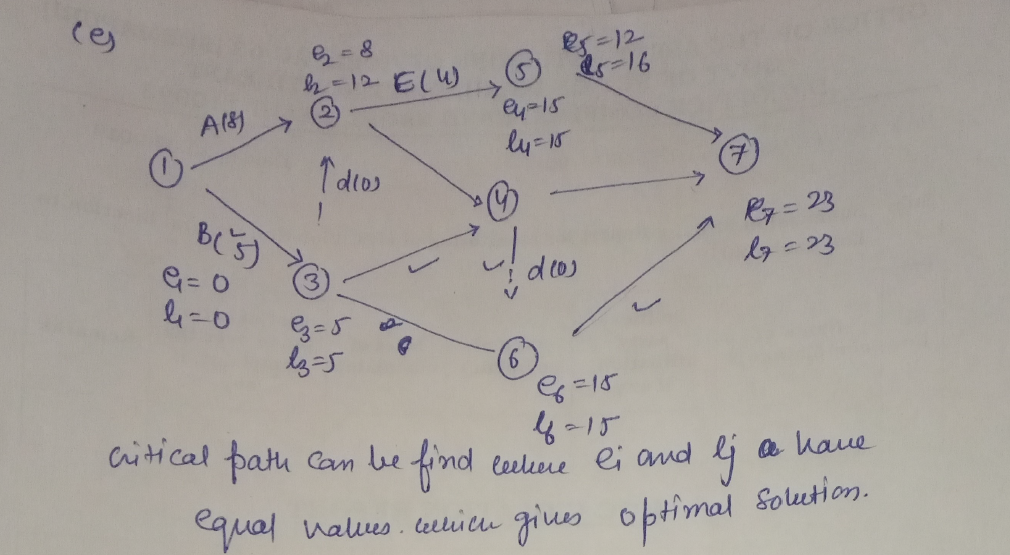 (e)
e5=12
l5=16
e2=8
l2=12
E(4)
5
A(8)
2
e4=15
l4=15
1
7
d(0)
4
e7=23
l7=23
B(5)
3
d(0)
e1=0
l1=0
e3=5
l3=5
6
e6=15
l6=15
critical path can be find where ei and lj have
equal values. which gives optimal solution.